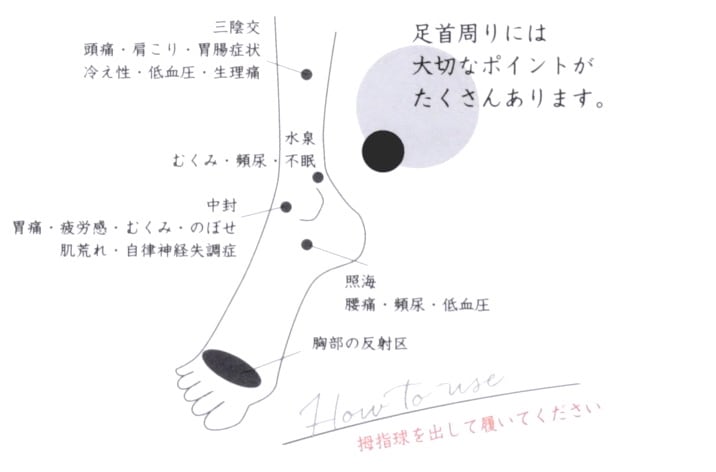 足首周りには
大切なポイントが
たくさんあります。
三陰交
頭痛・肩こり・胃腸症状
冷え性・低血圧・生理痛
水泉
むくみ・頻尿・不眠
中封
胃痛・疲労感・むくみ・のぼせ
肌荒れ・自律神経失調症
照海
腰痛・頻尿・低血圧
胸部の反射区
How to use
拇指球を出して履いてください